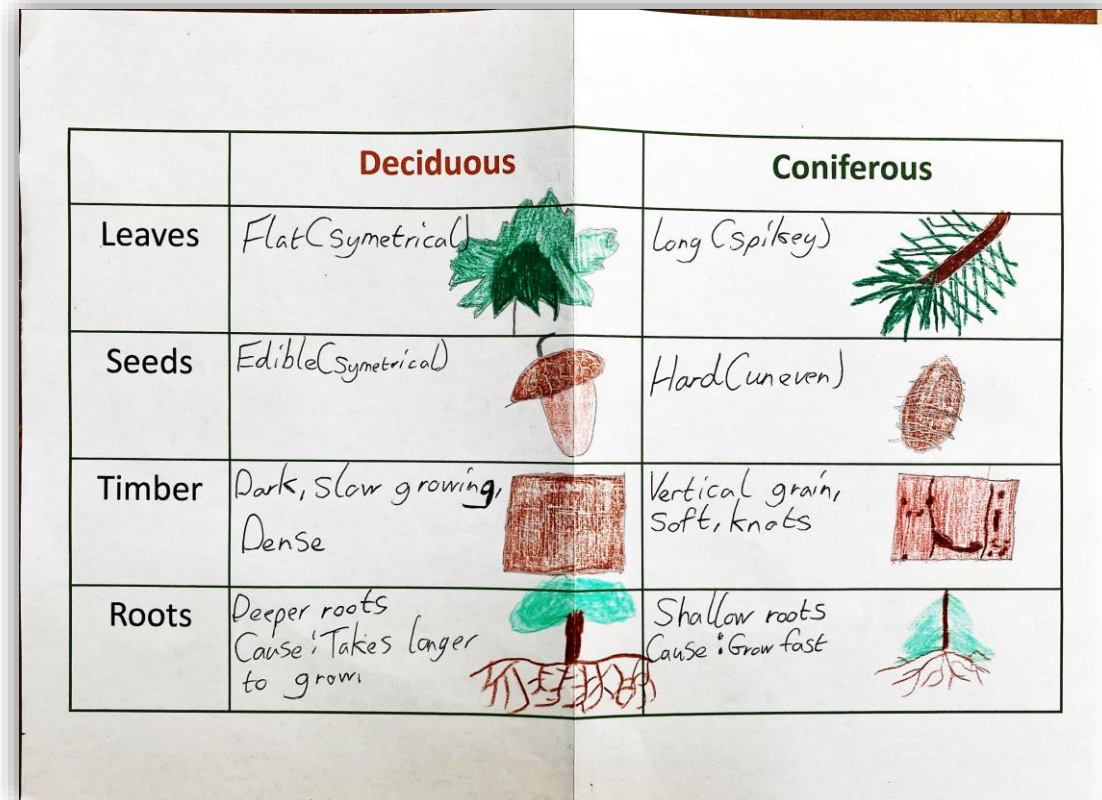 Deciduous
Coniferous
Leaves
Flat(symetrical)
Long (spikey)
Seeds
Edible(symetrical)
Hard(uneven)
Timber
Dark, slow growing,
Dense
Vertical grain,
soft, knots
Roots
Deeper roots
Cause: Takes longer
to grow.
Shallow roots
Cause: Grow fast